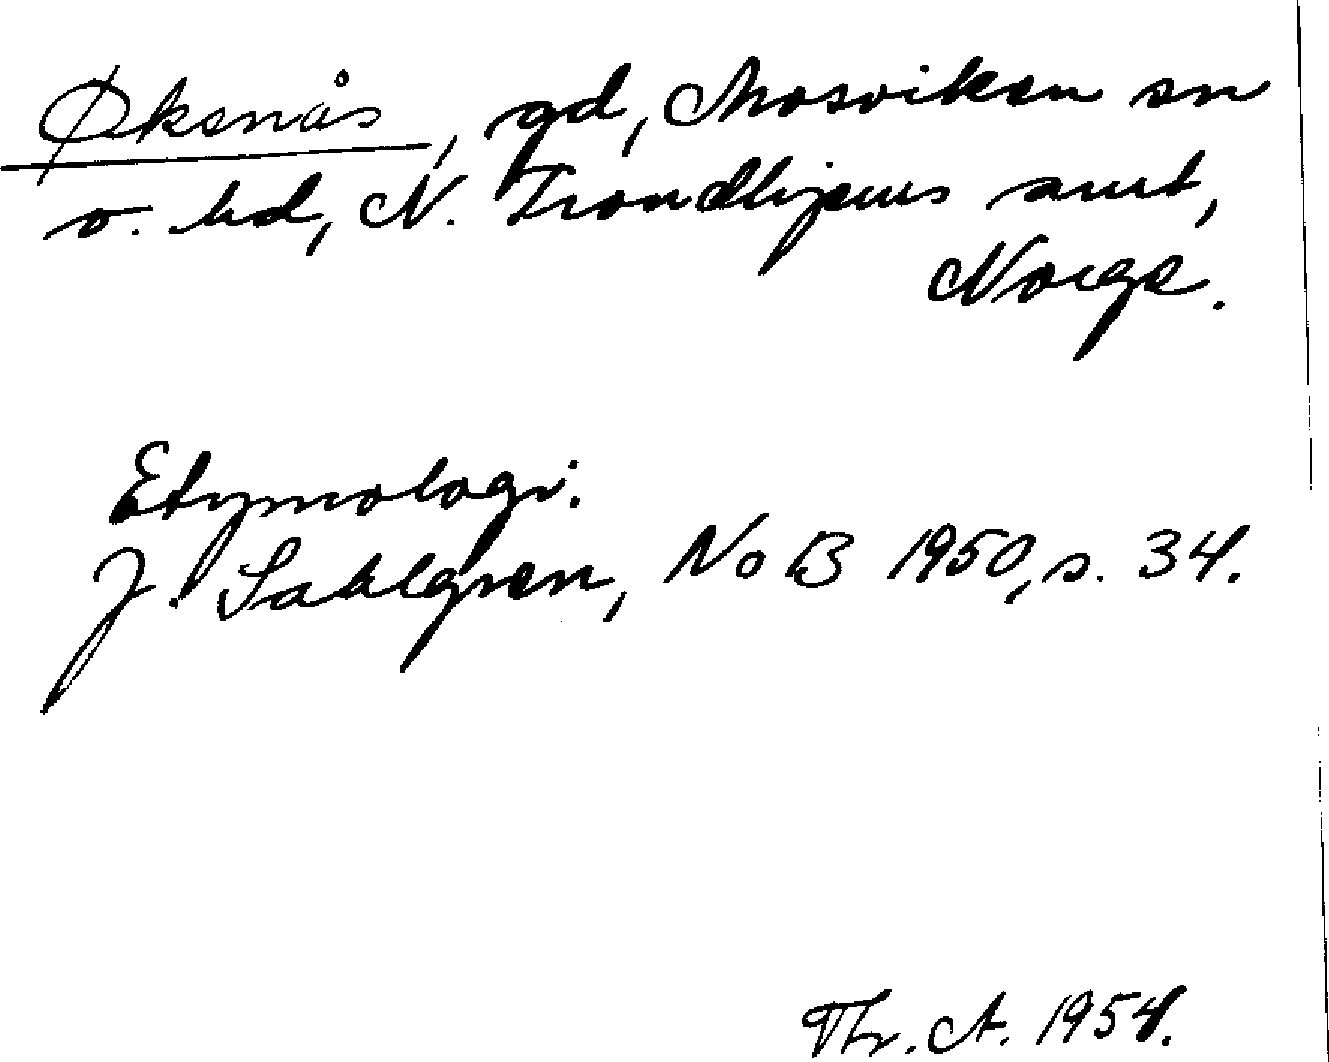 Økenås, gd, Mosviken sn
o. hd, N. Trondhjems amt,
Norge.
Etymologi.
J. Sahlgren, NoB 1950, s. 34.
Thr. A. 1954.